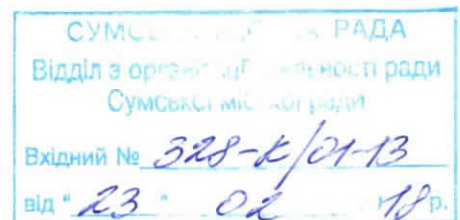 СУМСЬКА МІСЬКА РАДА
Відділ з організації діяльності ради
Сумської міської ради
Вхідний № 328-К/01-13
від " 23 " 02 18 р.